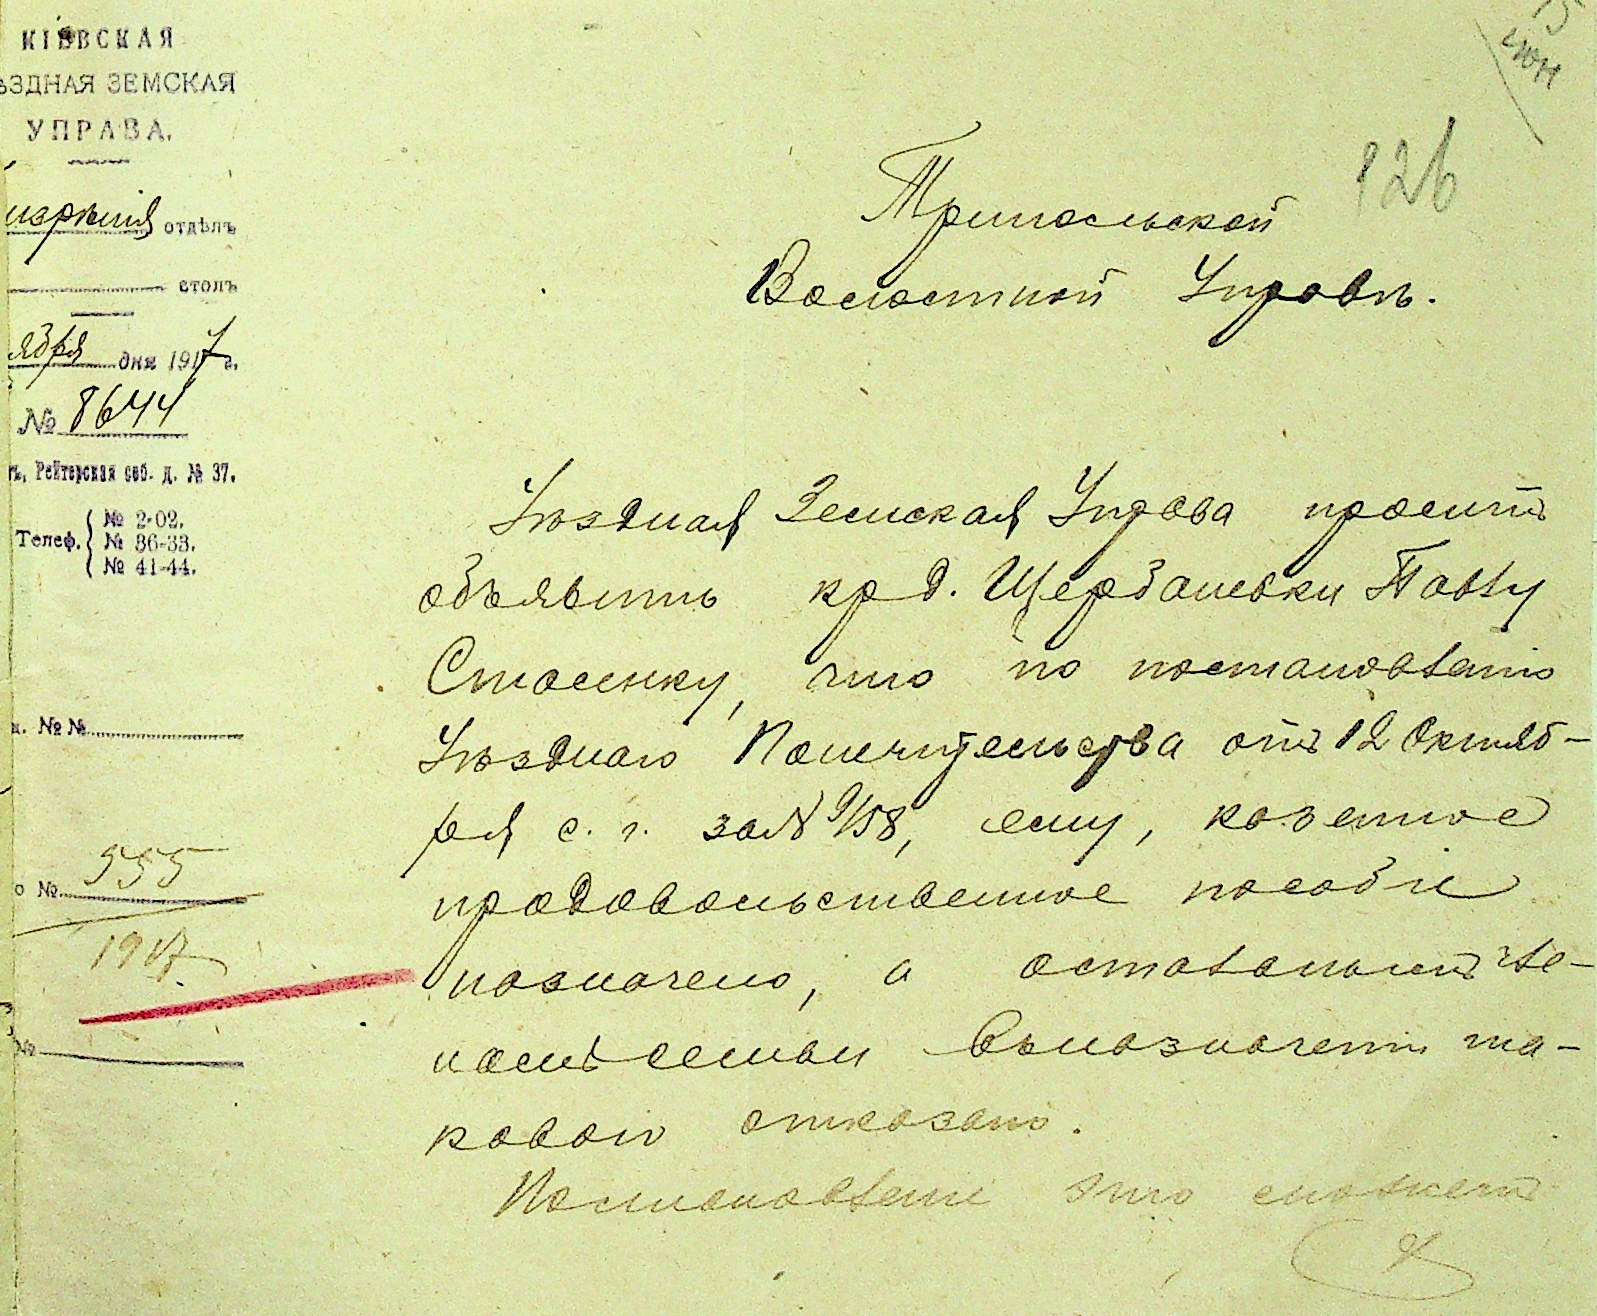 КІЕВСКАЯ
ѢЗДНАЯ ЗЕМСКАЯ
УПРАВА.
изрѣнія отдѣлъ
столъ
ября дня 1917 г.
№ 8644
Рейтерская соб. д. № 37.
Телеф. № 2-02.
№ 36-33.
№ 41-44.
№№
о № 555
1917
№
126
Трипольской
Волостной Управѣ.
Уѣздная Земская Управа проситъ
объявить кр д. Щербановки Павлу
Стасенку, что по постановленію
Уѣзднаго Попечительства отъ 12 Октяб-
ря с. г. за № 9/58, ему, казенное
продовольственное пособіе
назначено, а остальнымъ чле-
намъ семьи въ назначеніи та-
кового отказано.
Постановленіе это